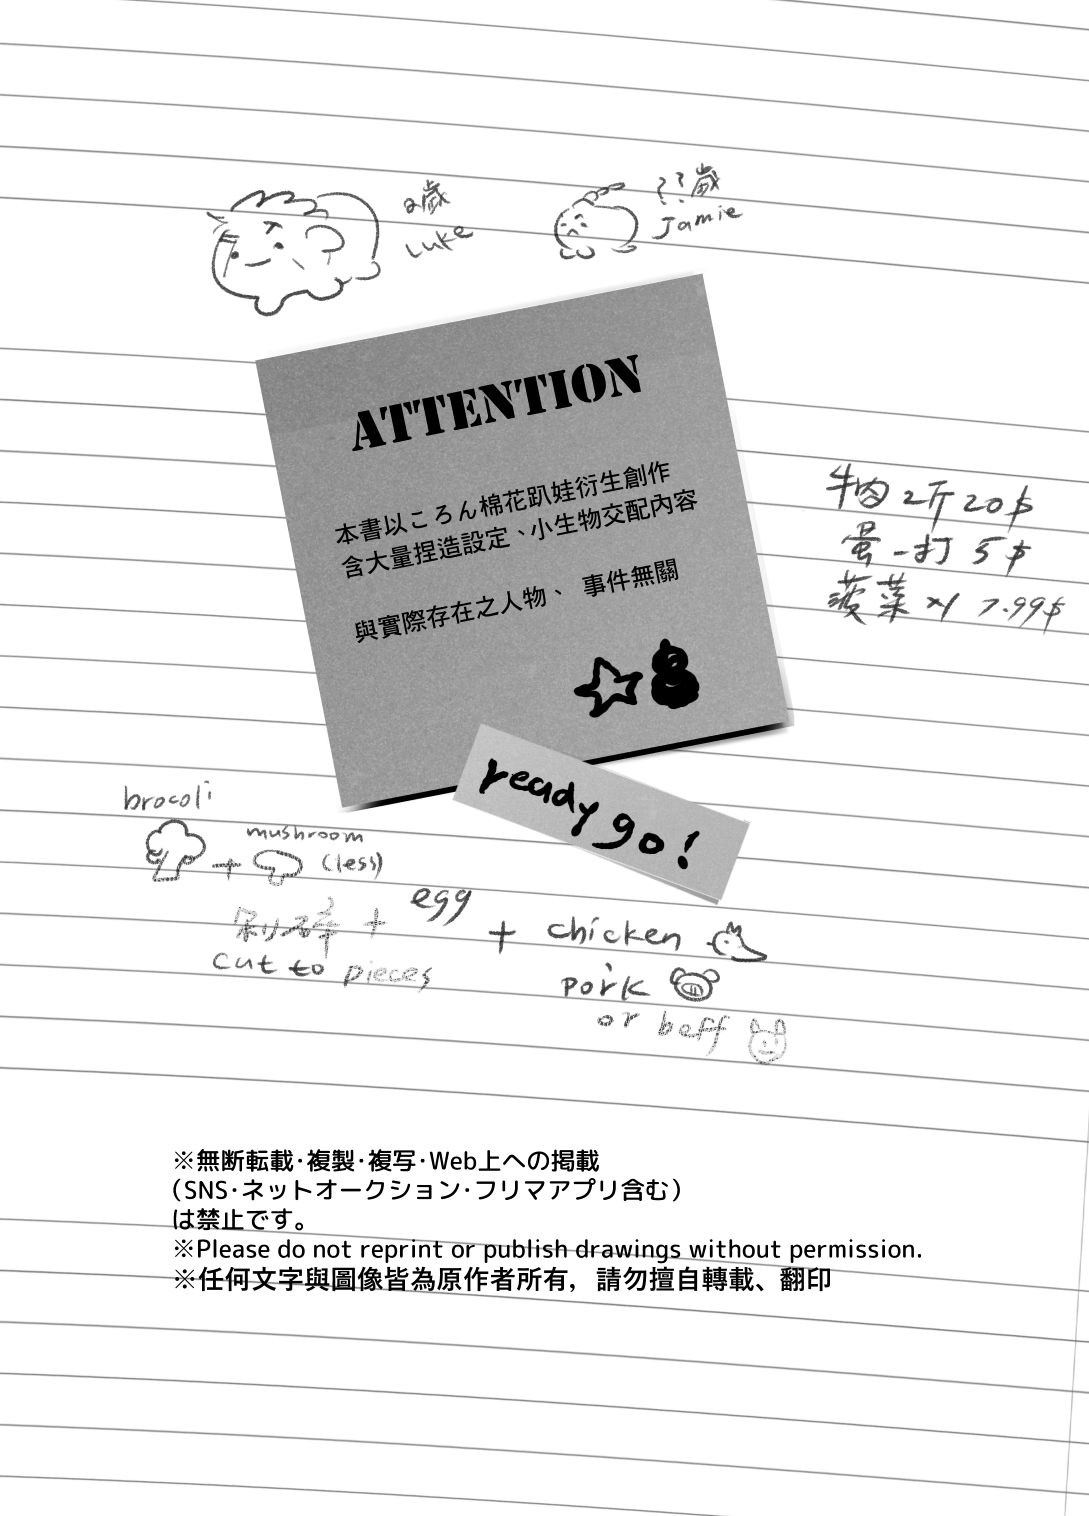 2歲
Luke
??歲
Jamie
ATTENTION
本書以ころん棉花趴娃衍生創作
含大量捏造設定、小生物交配內容
與實際存在之人物、 事件無關
牛肉 2斤 20$
蛋一打 5$
菠菜 x1 7.99$
ready go!
brocoli
mushroom
+ (less)
剁碎 + egg + chicken
cut to pieces
pork
or beff
※無断転載・複製・複写・Web上への掲載
(SNS・ネットオークション・フリマアプリ含む)
は禁止です。
※Please do not reprint or publish drawings without permission.
※任何文字與圖像皆為原作者所有，請勿擅自轉載、翻印